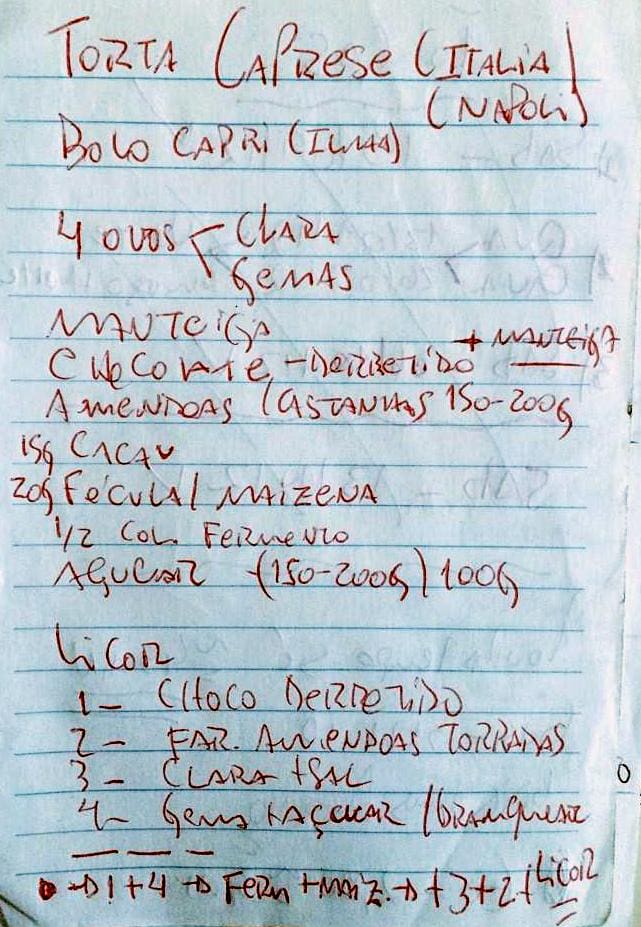 TORTA CAPRESE (ITALIA)
(NAPOLI)
BOLO CAPRI (ILHA)
4 OVOS < CLARA
GEMAS
MANTEIGA
CHOCOLATE - DERRETIDO + MANTEIGA
AMENDOAS / CASTANHAS 150-200G
15g CACAU
20g FÉCULA / MAIZENA
1/2 COL. FERMENTO
AÇUCAR (150-200G) 100G
LICOR
1- CHOCO DERRETIDO
2- FAR. AMENDOAS TORRADAS
3- CLARA + SAL
4- GEMA + AÇUCAR / BRANQUEAR
→ 1 + 4 → FERM + MAIZ. → + 3 + 2 + LICOR